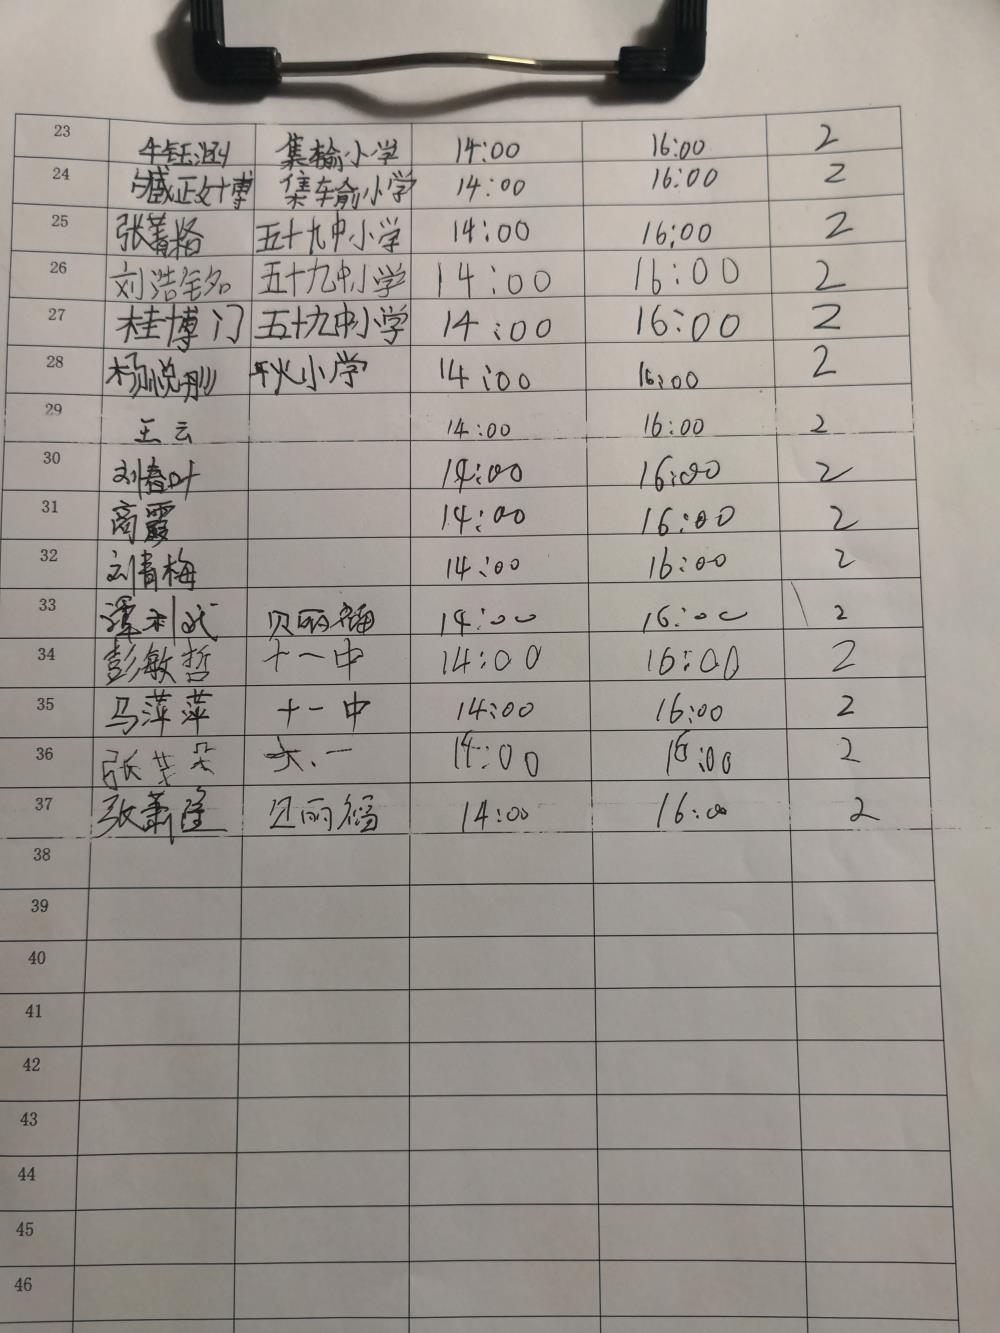 23 牛钰涵 集输小学 14:00 16:00 2
24 臧政博 集输小学 14:00 16:00 2
25 张菁格 五十九中小学 14:00 16:00 2
26 刘浩铭 五十九中小学 14:00 16:00 2
27 桂博门 五十九中小学 14:00 16:00 2
28 杨悦彤 小学 14:00 16:00 2
29 王云 14:00 16:00 2
30 刘春叶 14:00 16:00 2
31 商霞 14:00 16:00 2
32 刘青梅 14:00 16:00 2
33 贝丽 14:00 16:00 2
34 彭敏哲 十一中 14:00 16:00 2
35 马萍萍 十一中 14:00 16:00 2
36 张 朵 六.一 14:00 16:00 2
37 张萧 贝丽福 14:00 16:00 2
38
39
40
41
42
43
44
45
46